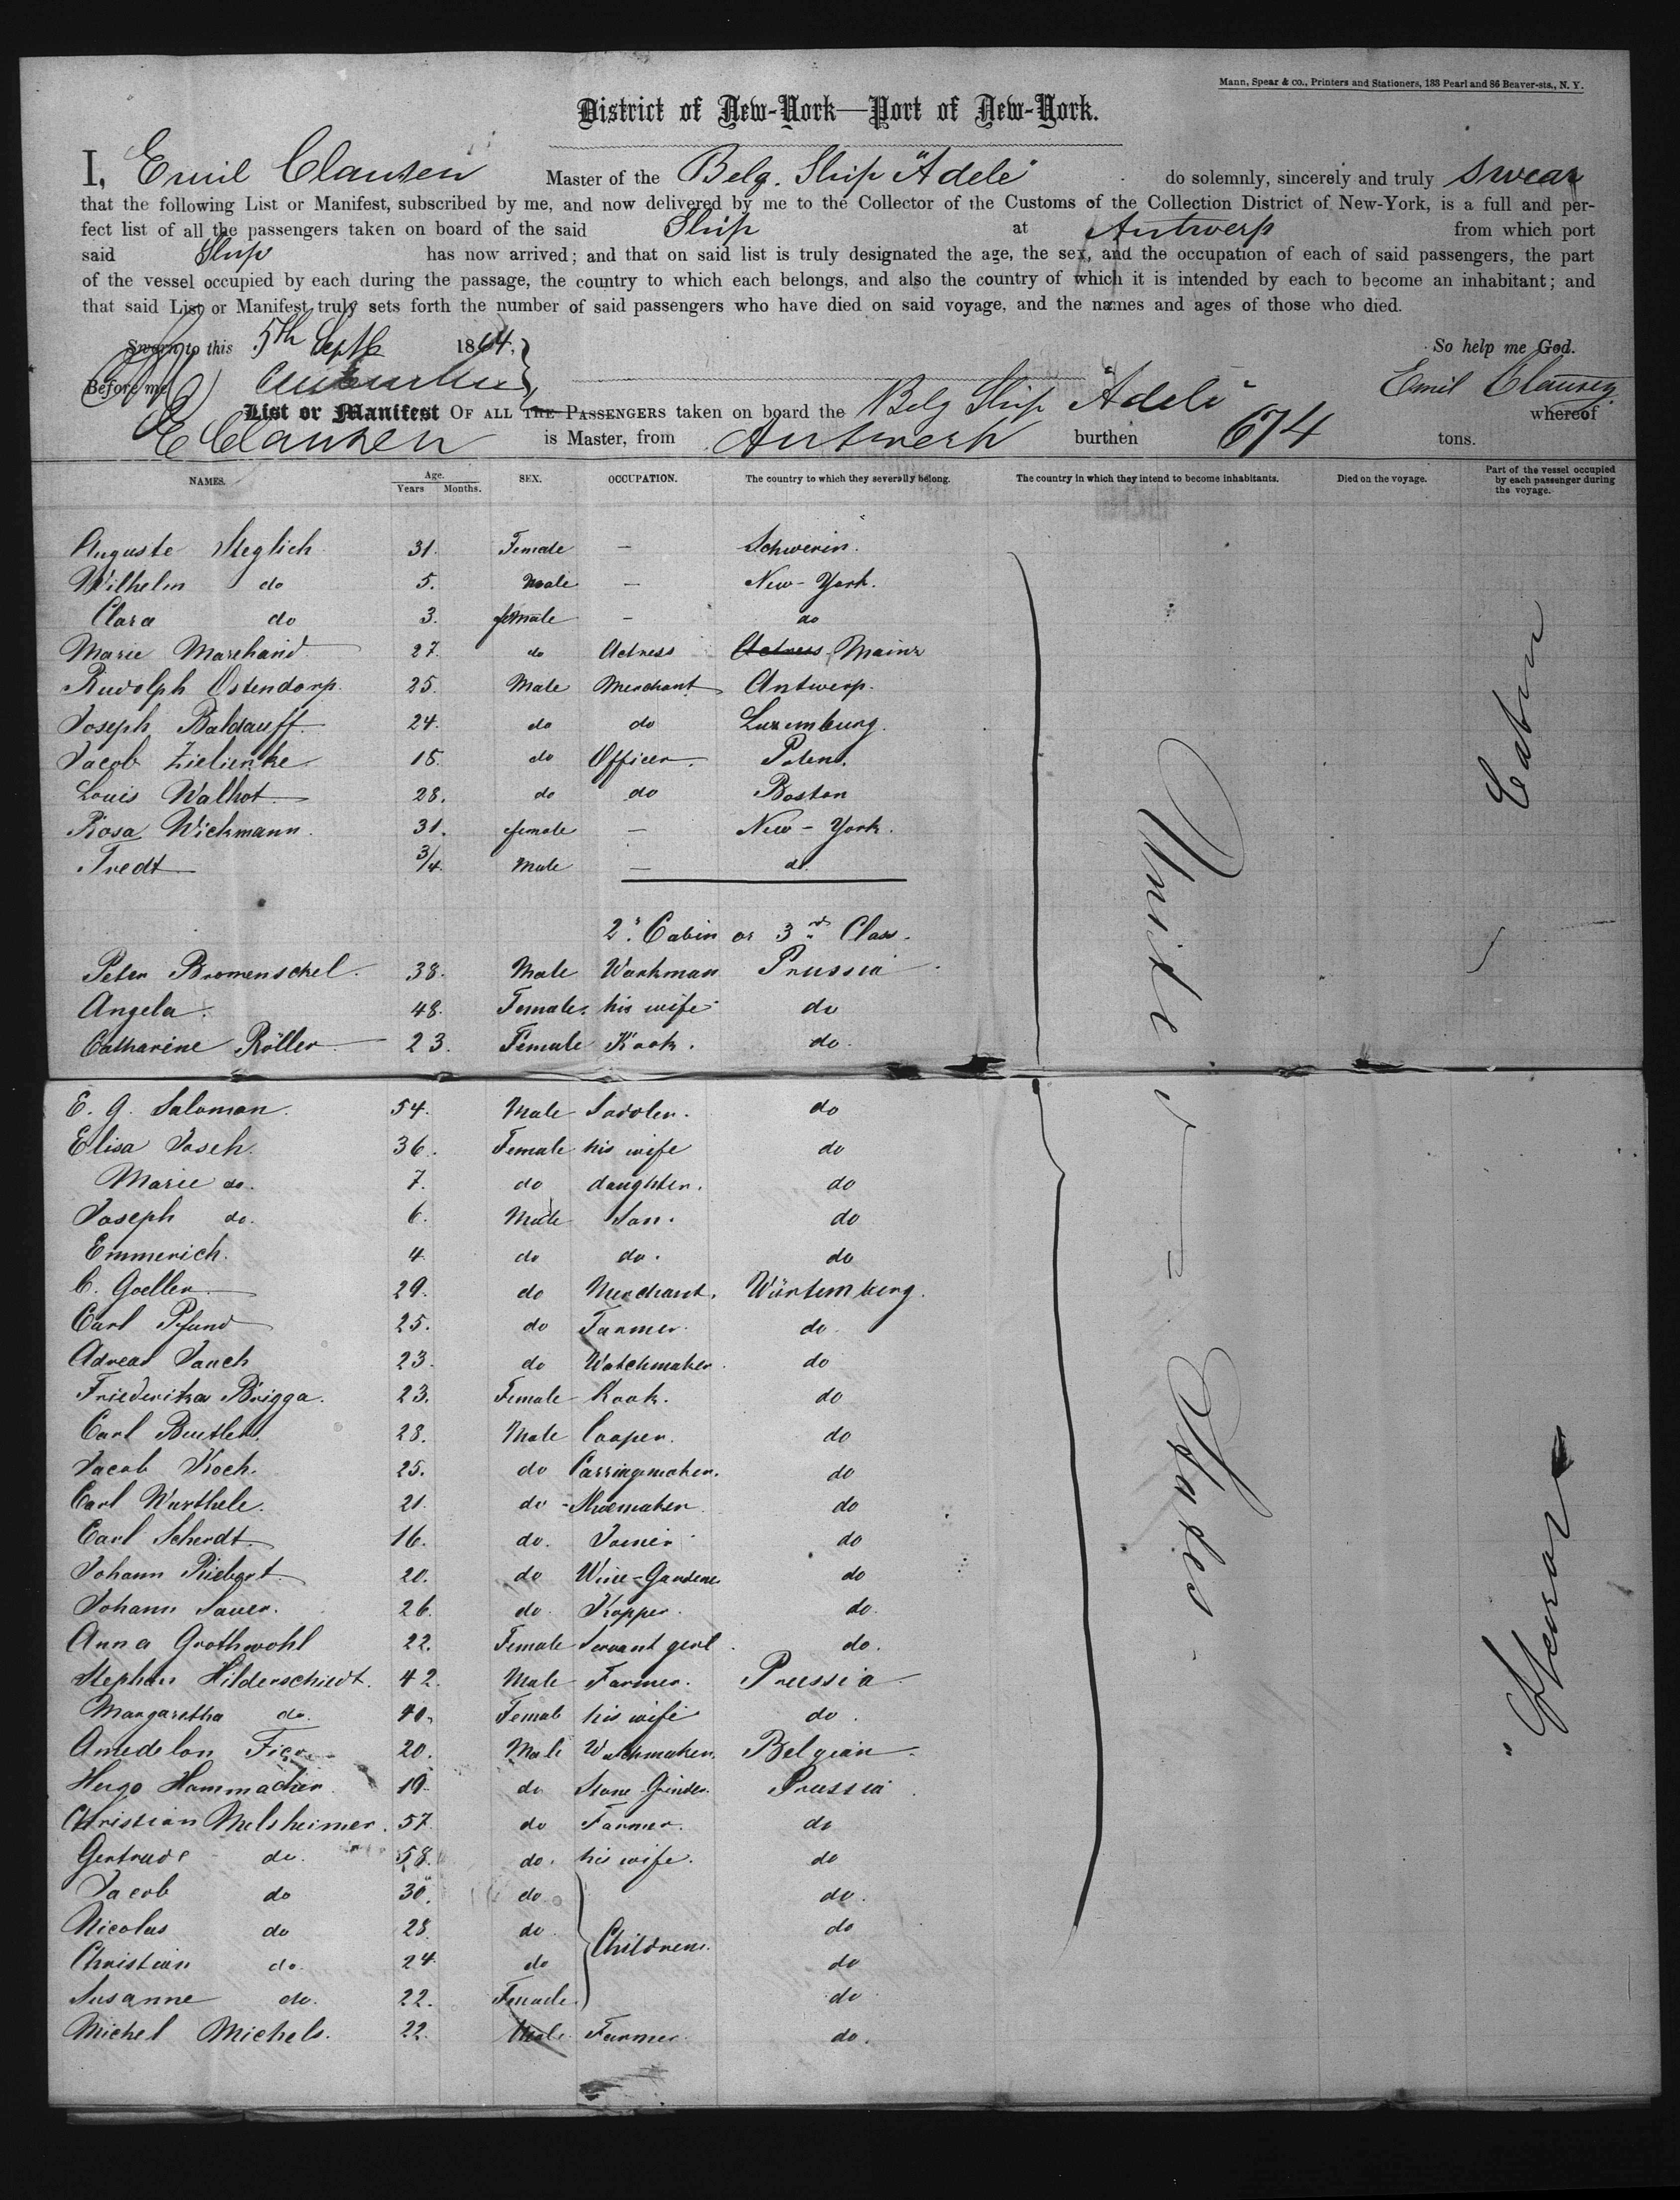 Mann, Spear & co., Printers and Stationers, 133 Pearl and 86 Beaver-sts., N. Y.
District of New-York—Port of New-York.
I, Emil Clausen Master of the Belg. Ship "Adele" do solemnly, sincerely and truly swear
that the following List or Manifest, subscribed by me, and now delivered by me to the Collector of the Customs of the Collection District of New-York, is a full and per-
fect list of all the passengers taken on board of the said Ship at Antwerp from which port
said Ship has now arrived; and that on said list is truly designated the age, the sex, and the occupation of each of said passengers, the part
of the vessel occupied by each during the passage, the country to which each belongs, and also the country of which it is intended by each to become an inhabitant; and
that said List or Manifest truly sets forth the number of said passengers who have died on said voyage, and the names and ages of those who died.
Sworn to this 5th Sept 1864, So help me God.
Before me Emil Clausen
List or Manifest OF ALL THE PASSENGERS taken on board the Belg Ship "Adele" whereof
E Clausen is Master, from Antwerp burthen 674 tons.
NAMES. Age. Years Months. SEX. OCCUPATION. The country to which they severally belong. The country in which they intend to become inhabitants. Died on the voyage. Part of the vessel occupied by each passenger during the voyage.
Auguste Steglich 31. Female — Schwerin.
Wilhelm do 5. Male — New-York.
Clara do 3. female — do
Marie Marchand 27. do Actress Actress Mainz
Rudolph Ostendorp. 25. Male Merchant Antwerp.
Joseph Baldauff. 24. do do Luxemburg.
Jacob 18. do Officer. Polen.
Louis Walhot 28. do do Boston
Rosa Wickmann. 31. female — New-York.
Fredt 3/4. Male — do.
2d. Cabin or 3rd Class.
Peter Bromenschel. 38. Male Workman Prussia
Angela. 48. Female. his wife do
Catharine Röller 23. Female Kook. do.
E. G. Saloman. 54. Male Sadler. do
Elisa Josch. 36. Female his wife do
Marie do. 7. do daughter. do
Joseph do. 6. Male Son. do
Emmerich. 4. do do. do
C. Goeller 29. do Merchant. Würtemberg.
Carl Pfund 25. do Farmer. do.
Adreas Jauch 23. do Watchmaker. do
Friederika Brigga. 23. Female Kook. do
Carl Buttler. 28. Male Cooper. do
Jacob Koch. 25. do Carriagemaker. do
Carl Wurthele. 21. do Shoemaker do
Carl Scherdt. 16. do. Joiner do
Johann 20. do Wine-Gardene do
Johann Sauer. 26. do. Kopper. do.
Anna Grothwohl 22. Female Servant gerl. do.
Stephan Hilderschiedt. 42. Male Farmer. Prussia
Margaretha do. 40. Female his wife do.
20. Male Watchmaker. Belgian.
Hugo Hammacher 19. do Stone-Grinder. Prussia
Christian Melsheimer. 57. do Farmer. do
Gertrude do. 58. do. his wife. do
Jacob do 30. do do.
Nicolas do 28. do. Children. do
Christian do. 24. do do
Susanne do. 22. Female do
Michel Michels. 22. Male Farmer do.
United States
Cabin